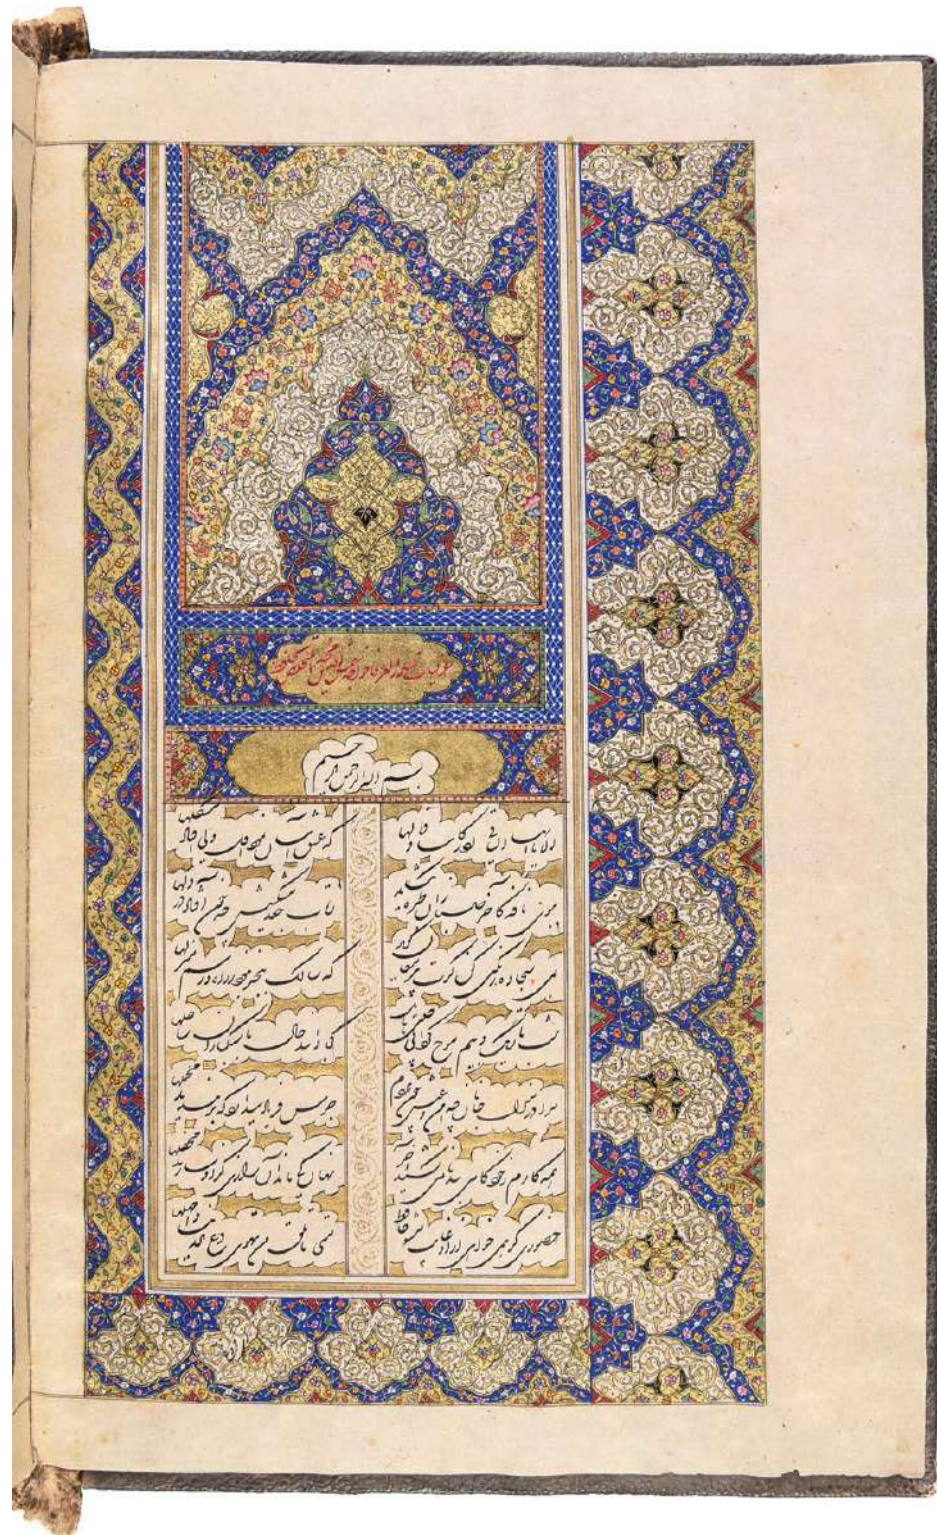 بسم الله الرحمن الرحیم
الا یا ایها الساقی ادر کاسا و ناولها
که عشق آسان نمود اول ولی افتاد مشکلها
ببوی نافه کاخر صبا زان طره بگشاید
ز تاب جعد مشکینش چه خون افتاد در دلها
بمی سجاده رنگین کن گرت پیر مغان گوید
که سالک بیخبر نبود ز راه و رسم منزلها
شب تاریک و بیم موج و گردابی چنین هایل
کجا دانند حال ما سبکباران ساحلها
مرا در منزل جانان چه امن و عیش چون هر دم
جرس فریاد میدارد که بربندید محملها
همه کارم ز خود کامی ببدنامی کشید آخر
نهان کی ماند آن رازی کزو سازند محفلها
حضوری گر همی خواهی ازو غایب مشو حافظ
متی ما تلق من تهوی دع الدنیا و اهملها